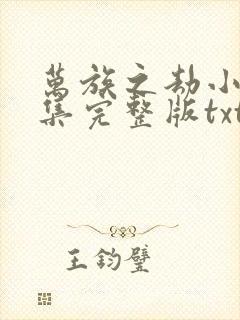 萬族之劫小
集完整版txt
王鈞璧